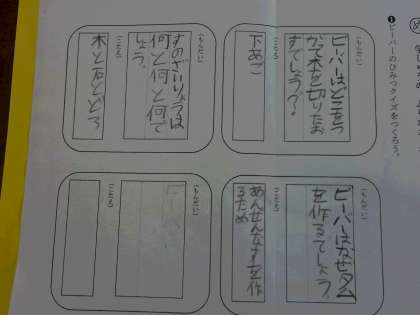 ❶ビーバーのひみつクイズをつくろう。
(もんだい)
ビーバーはどこをつ
かって木を切りたお
すでしょう?
(こたえ)
下あご
(もんだい)
すのざいりょうは
何と何と何で
しょう。
(こたえ)
木と石とどろ
(もんだい)
ビーバーはなぜダム
を作るでしょう。
(こたえ)
あんぜんなすを作
るため
(もんだい)
(こたえ)